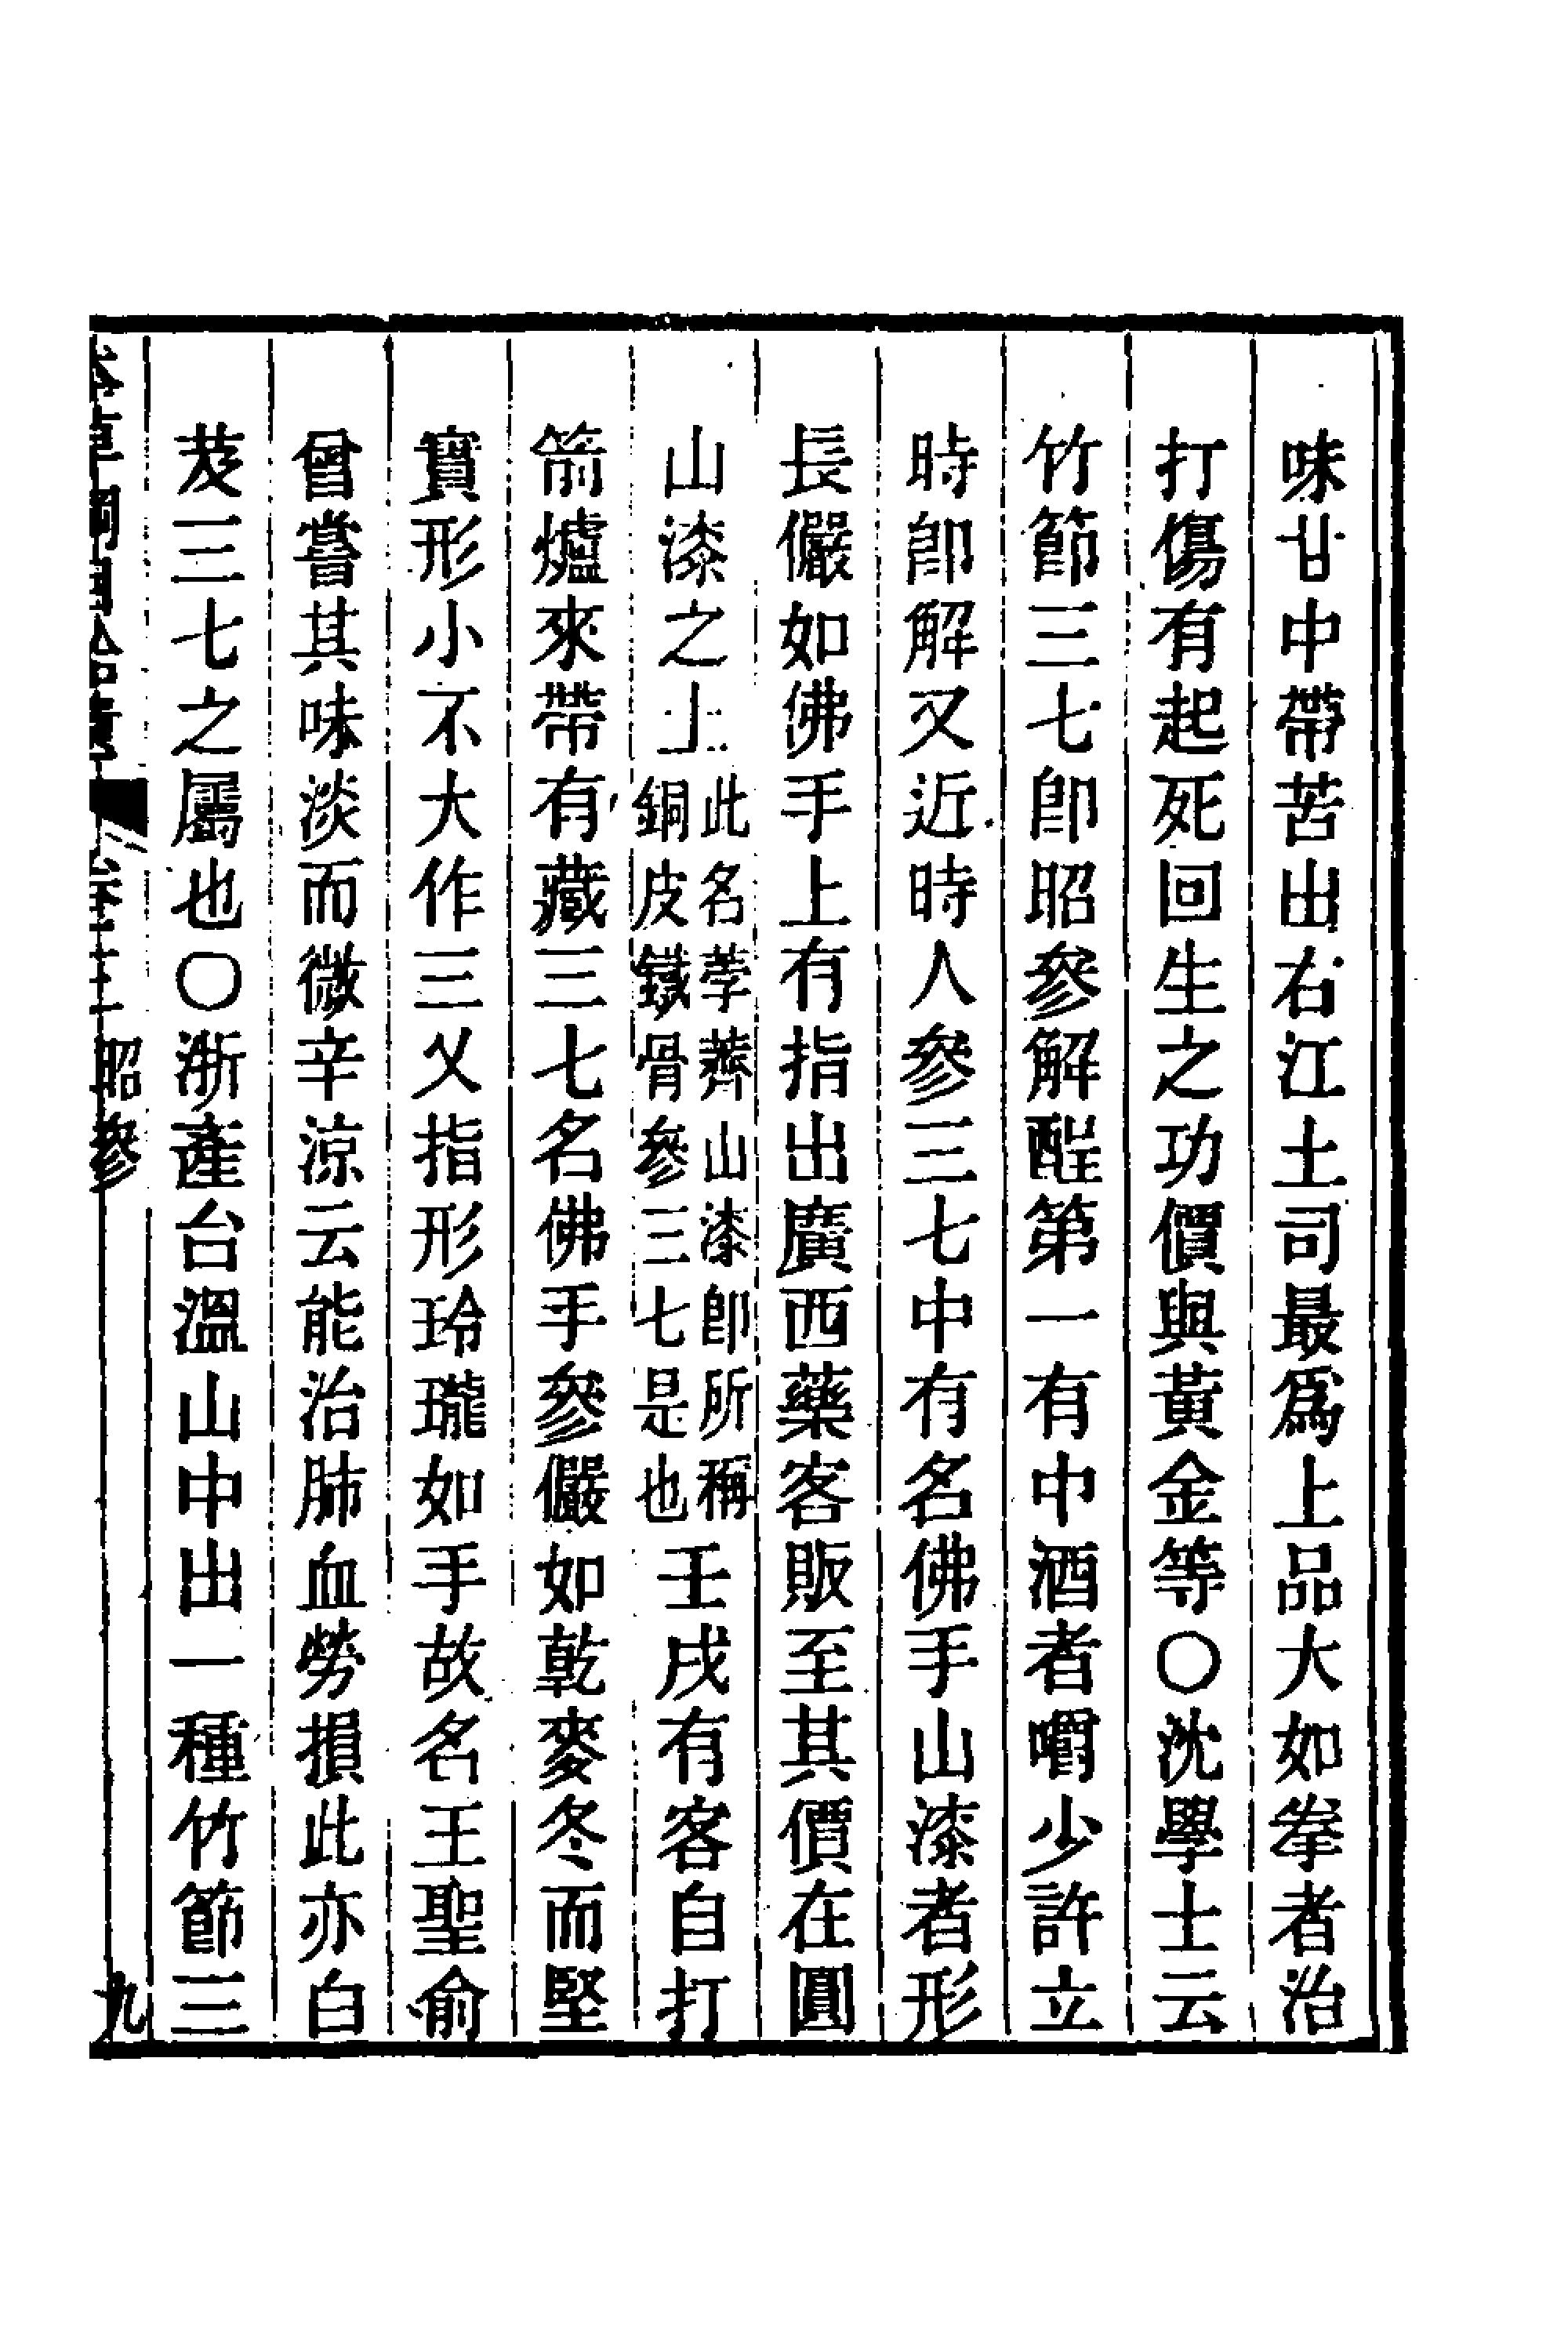 味甘中帶苦出右江土司最爲上品大如拳者治
打傷有起死回生之功價與黃金等〇沈學士云
竹節三七卽昭參解酲第一有中酒者嚼少許立
時卽解又近時人參三七中有名佛手山漆者形
長儼如佛手上有指出廣西藥客販至其價在圓
山漆之上此名荸薺山漆卽所稱銅皮鐵骨參三七是也壬戌有客自打
箭爐來帶有藏三七名佛手參儼如乾麥冬而堅
實形小不大作三乂指形玲瓏如手故名王聖俞
曾嘗其味淡而微辛涼云能治肺血勞損此亦白
芨三七之屬也〇浙產台溫山中出一種竹節三
本草綱目拾遺 卷三 昭參 九